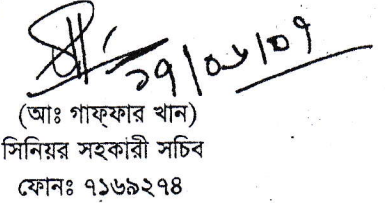 (আঃ গাফ্ফার খান)
সিনিয়র সহকারী সচিব
ফোনঃ ৭১৬৯২৭৪